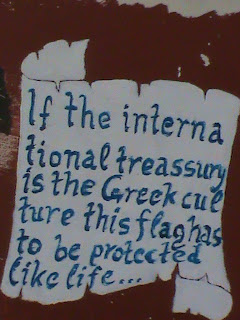 If the interna
tional treassury
is the Greek cul
ture this flag has
to be protected
like life...